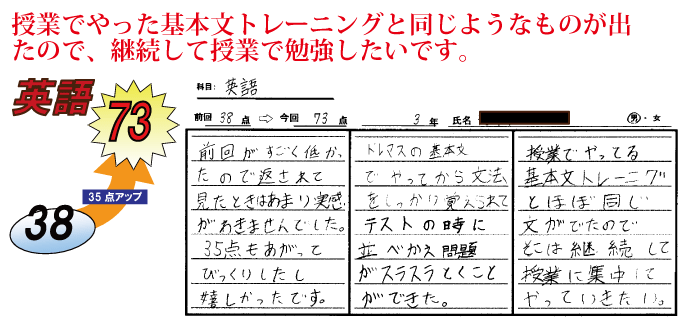 授業でやった基本文トレーニングと同じようなものが出
たので、継続して授業で勉強したいです。
英語
73
35点アップ
38
科目: 英語
前回 38 点 ⇨ 今回 73 点 3 年 氏名 男・女
前回がすごく低かっ
たので返されて
見たときはあまり実感
がわきませんでした。
35点もあがって
びっくりしたし
嬉しかったです。
ドレマスの基本文
でやってから文法
をしっかり覚えられて
テストの時に
並べかえ問題
がスラスラとくこと
ができた。
授業でやってる
基本文トレーニング
とほぼ同じ
文がでたので
そこは継続して
授業に集中して
やっていきたい。